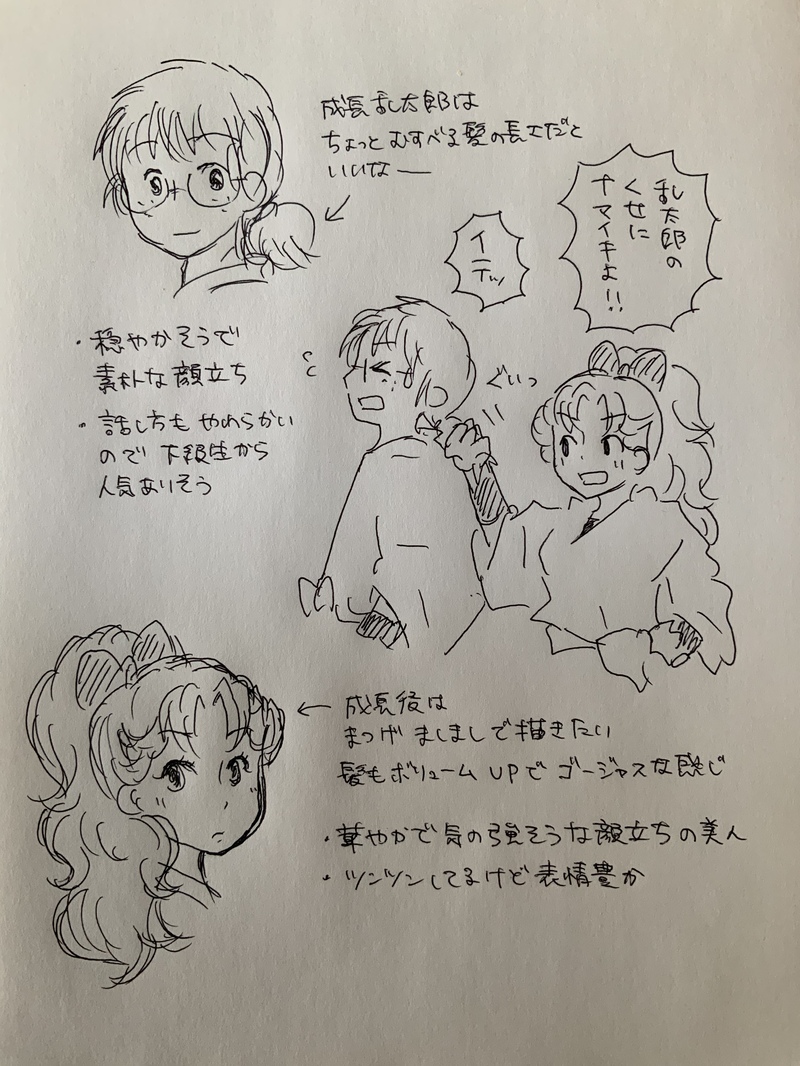 成長乱太郎は
ちょっとむすべる髪の長さだと
いいなー
乱太郎の
くせに
ナマイキよ!!
イテッ
ぐいっ
・穏やかそうで
素朴な顔立ち
・話し方もやわらかい
ので下級生から
人気ありそう
← 成長後は
まつげましましで描きたい
髪もボリュームUPでゴージャスな感じ
・華やかで気の強そうな顔立ちの美人
・ツンツンしてるけど表情豊か